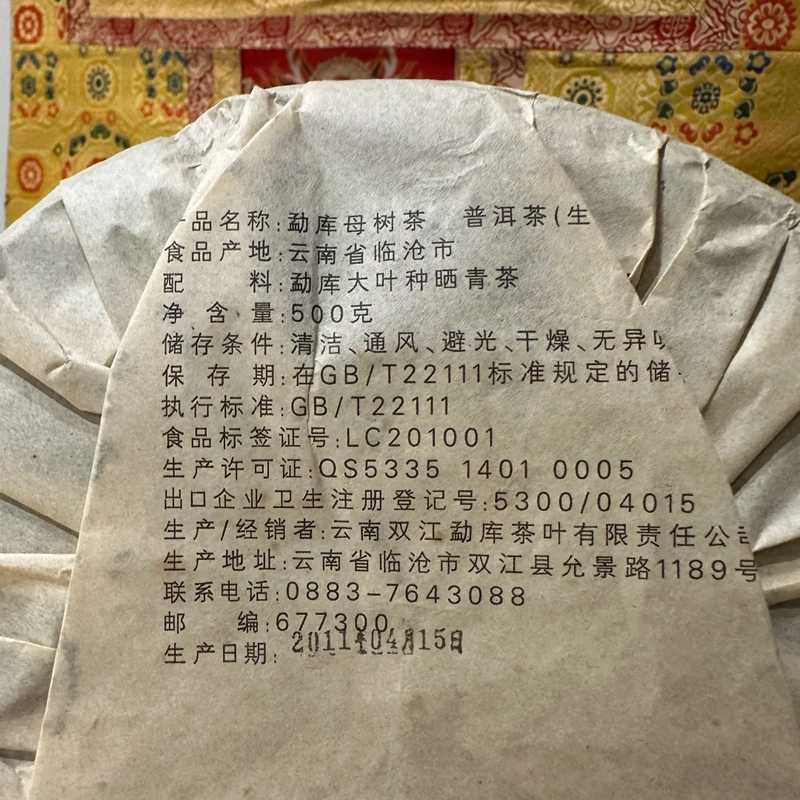 品名称:勐库母树茶 普洱茶(生
食品产地:云南省临沧市
配 料:勐库大叶种晒青茶
净 含 量:500克
储存条件:清洁、通风、避光、干燥、无异
保 存 期:在GB/T22111标准规定的储
执行标准:GB/T22111
食品标签证号:LC201001
生产许可证:QS5335 1401 0005
出口企业卫生注册登记号:5300/04015
生产/经销者:云南双江勐库茶叶有限责任公司
生产地址:云南省临沧市双江县允景路1189号
联系电话:0883-7643088
邮 编:677300
生产日期:2011年04月15日